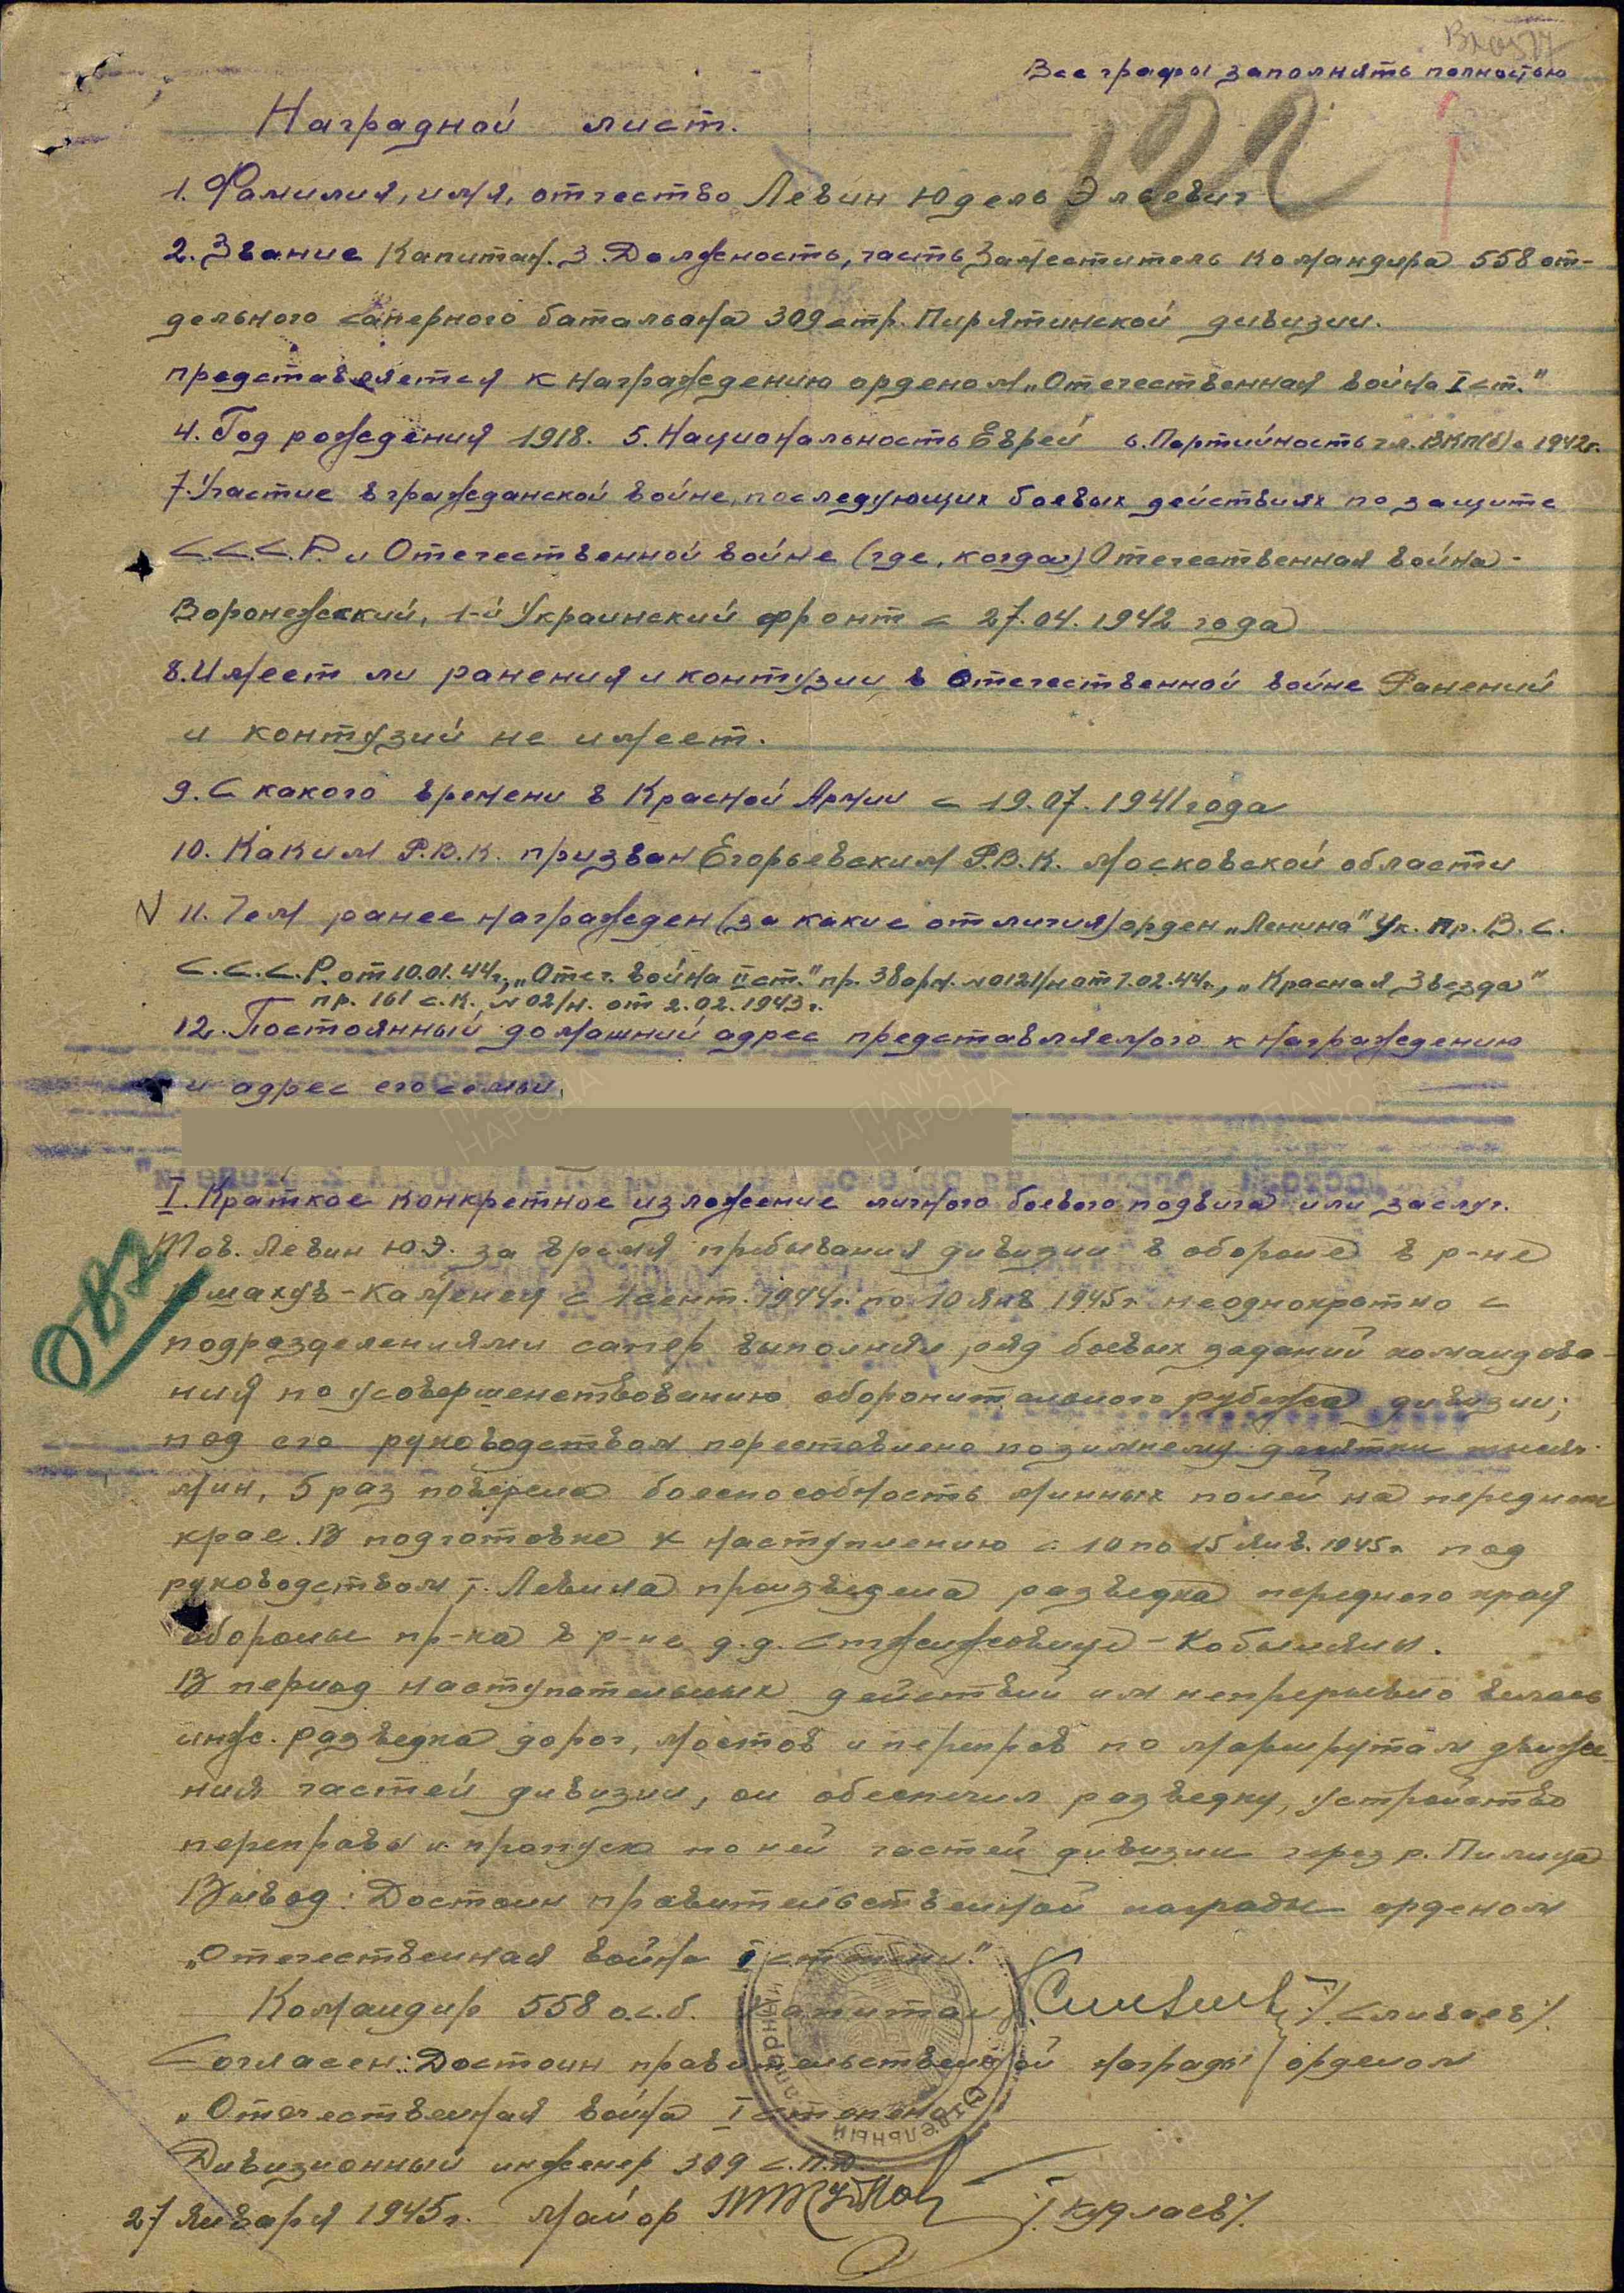 Все графы заполнять полностью
122
Наградной лист.
1. Фамилия, имя, отчество Левин Юдель Эльевич
2. Звание Капитан. 3 Должность, часть Заместитель командира 558 от-
дельного саперного батальона 309 стр. Пирятинской дивизии.
представляется к награждению орденом „Отечественная война I ст."
4. Год рождения 1918. 5. Национальность Еврей 6. Партийность чл. ВКП(б) с 1942г.
7. Участие в гражданской войне, последующих боевых действиях по защите
С.С.С.Р. и Отечественной войне (где, когда) Отечественная война -
Воронежский, 1-й Украинский фронт с 27.04.1942 года
8. Имеет ли ранения и контузии в Отечественной войне Ранений
и контузий не имеет.
9. С какого времени в Красной Армии с 19.07.1941 года
10. Каким Р.В.К. призван Егорьевским Р.В.К. Московской области
11. Чем ранее награжден (за какие отличия) орден „Ленина" Ук. Пр. В.С.
С.С.С.Р. от 10.01.44г., „Отеч. война II ст." пр. 38 арм. №0121/н от 7.02.44г., „Красная Звезда"
пр. 161 с.к., №02/н. от 2.02.1943г.
12. Постоянный домашний адрес представляемого к награждению
и адрес его семьи.
I. Краткое конкретное изложение личного боевого подвига или заслуг.
ОВ1
Тов. Левин Ю.Э. за время пребывания дивизии в обороне в р-не
-Каменец с 1 сент. 1944г. по 10 янв 1945г неоднократно с
подразделениями сапер выполнял ряд боевых заданий командова-
ния по усовершенствованию оборонительного рубежа дивизии;
под его руководством переставлено по зимнему десятки тысяч
мин, 5 раз поверена боеспособность минных полей на переднем
крае. В подготовке к наступлению с 10 по 15 янв. 1945г. под
руководством т. Левина произведена разведка переднего края
обороны пр-ка в р-не д.д. - Кобыляны.
В период наступательных действий им непрерывно велась
инж. разведка дорог, мостов и переправ по маршрутам движе-
ния частей дивизии, он обеспечил разведку, устройство
переправы и пропуск по ней частей дивизии через р. Пилица
Вывод: Достоин правительственной награды орденом
„Отечественная война I степени."
Командир 558 о.с.б. Капитан /Сливаев/.
Согласен: Достоин правительственной награды орденом
„Отечественная война I степени"
Дивизионный инженер 309 с.П.д.
27 января 1945г. майор /Курлаев/.